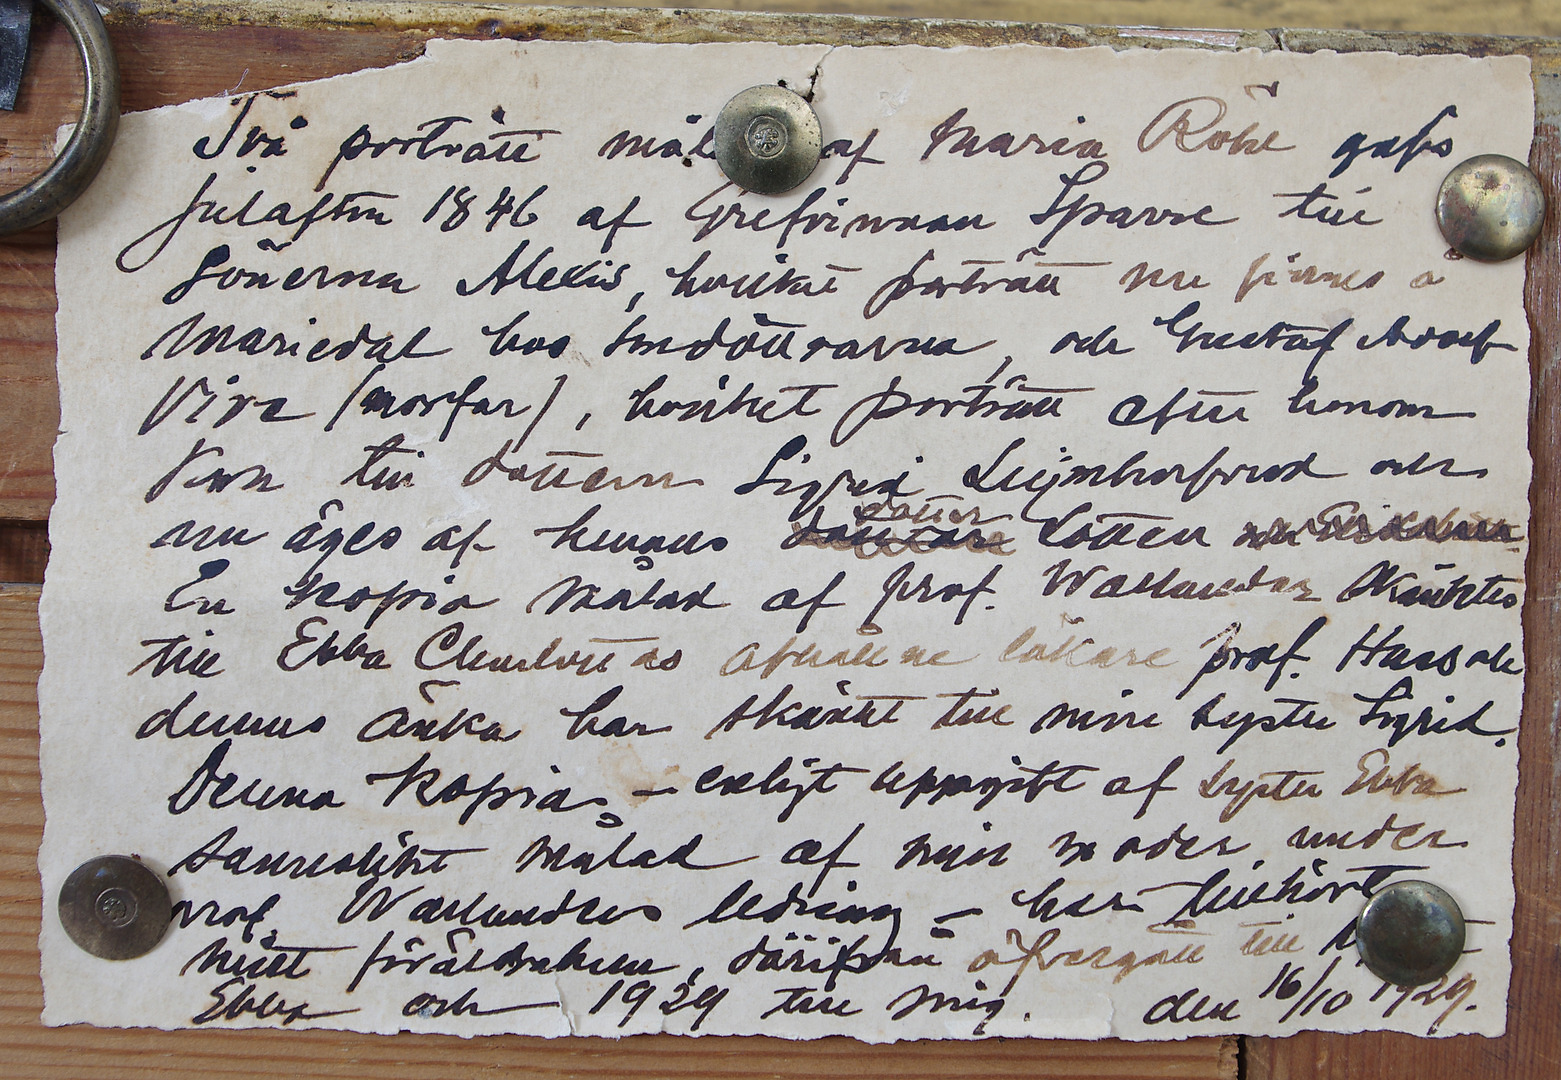 Två porträtt mål af Maria Röhl gafs
julafton 1846 af Grefvinnan Sparre till
Sönerna Alexis, hvilket porträtt nu finnes å
Mariedal hos Sondöttrarna, och Gustaf Adolf
Vive (morfar), hvilket porträtt efter honom
kom till dottern Sigrid Leijonhufvud och
nu äges af hennes dotter Lotten
En kopia målad af prof. Wallander skänktes
till Ebba Charlottas afhållne läkare prof. Huss och
dennes änka har skänkt till min syster Sigrid.
Denna kopia, – enligt uppgift af syster Ebba
sannolikt målad af min moder under
prof. Wallanders ledning – har tillhört
mitt föräldrahem, därifrån öfvergått till
Ebba och 1929 till mig. den 16/10 1929.